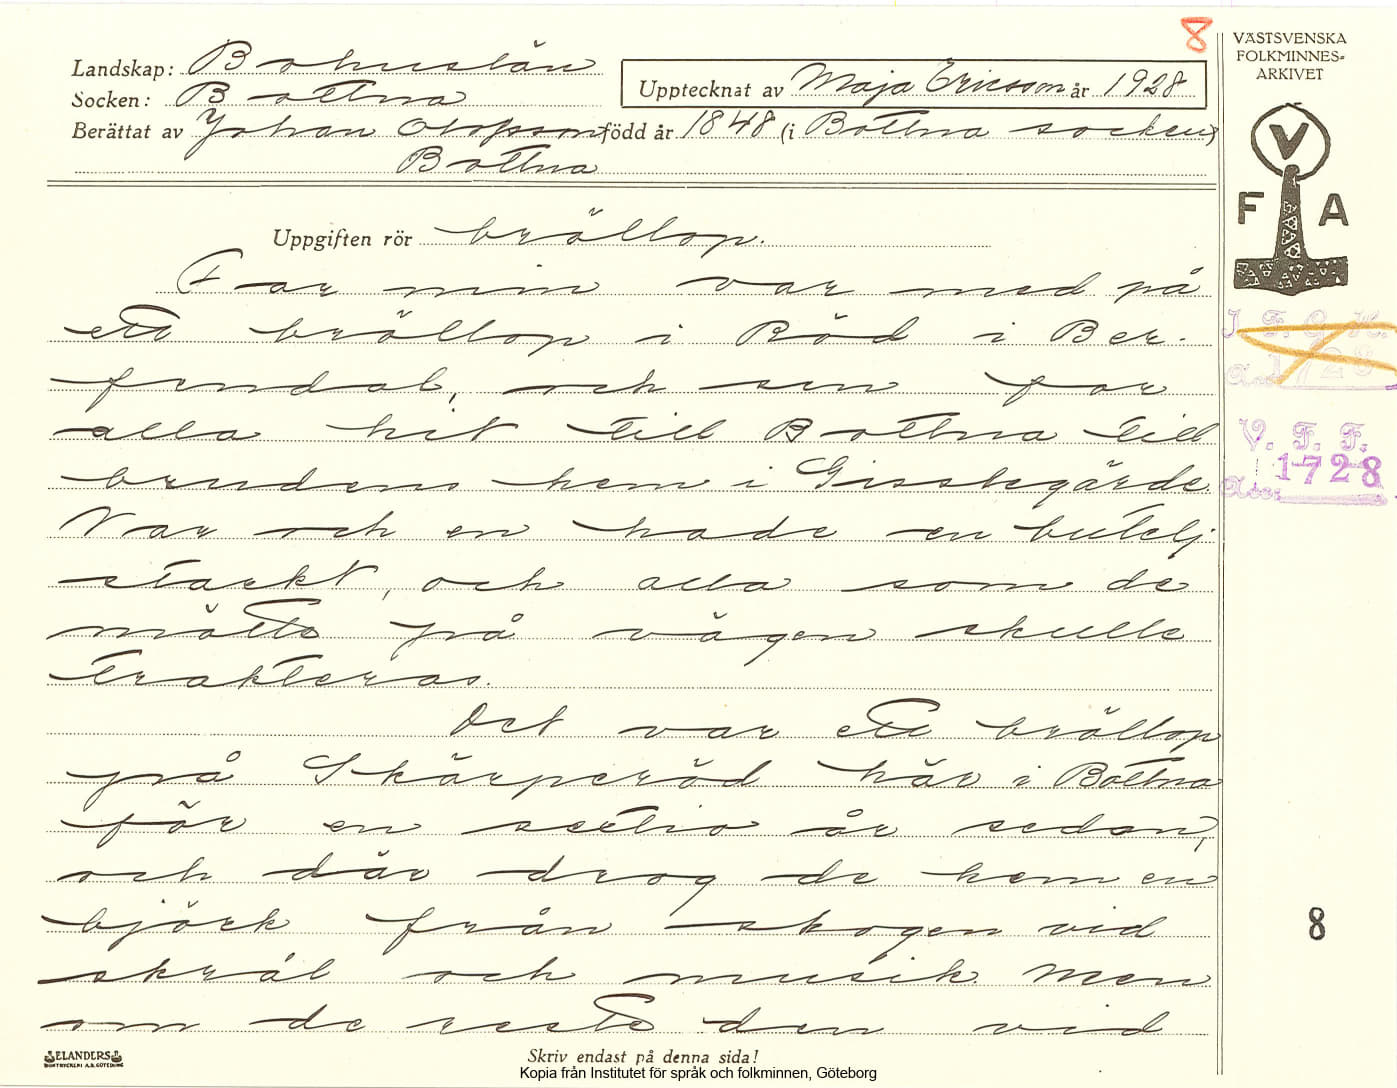 8
VÄSTSVENSKA
FOLKMINNES=
ARKIVET
Landskap: Bohuslän
Socken: Bottna
Upptecknat av Maja Ericsson år 1928
Berättat av Johan Olofsson född år 1848 (i Bottna socken)
Bottna
V
F A
Uppgiften rör bröllop.
Far min var med på
ett bröllop i Röd i Ber-
fendal, och sen for
alla hit till Bottna till
brudens hem i Gisslegärde.
Var och en hade en butelj
starkt, och alla som de
mötte på vägen skulle
trakteras.
Det var ett bröllop
på Skärperöd här i Bottna
för en sextio år sedan,
och där drog de hem en
björk från skogen vid
skrål och musik. Men
om de reste den vid
I. F. G. H.
1728
V. F. F.
1728
8
ELANDERS
BOKTRYCKERI A.B. GÖTEBORG
Skriv endast på denna sida!
Kopia från Institutet för språk och folkminnen, Göteborg